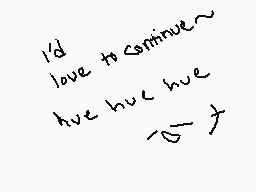 I'd
love to continue~
hue hue hue